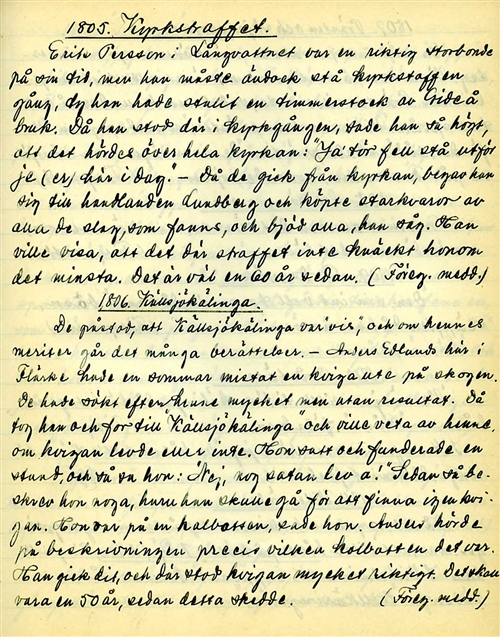 1805. Kyrkstraffet.
Erik Persson i Långvattnet var en riktig storbonde
på sin tid, men han måste ändock stå kyrkstraff en
gång, ty han hade stulit en timmerstock av Gideå
bruk. Då han stod där i kyrkgången, sade han så högt,
att det hördes över hela kyrkan: "Ja tör fell stå utför
je (er) här i dag." – Då de gick från kyrkan, begav han
sig till handlanden Lundberg och köpte starkvaror av
alla de slag, som fanns, och bjöd alla, han såg. Han
ville visa, att det där straffet inte knäckt honom
det minsta. Det är väl en 60 år sedan. (Föreg. medd.)
1806. Källsjökälinga.
De påstod, att Källsjökälinga var "vis", och om hennes
meriter går det många berättelser. – Anders Edlunds här i
Flärke hade en sommar mistat en kviga ute på skogen.
De hade sökt efter henne mycket men utan resultat. Då
tog han och for till "Källsjökälinga" och ville veta av henne,
om kvigan levde eller inte. Hon satt och funderade en
stund, och så sa hon: "Nej, nog satan lev a." Sedan så be-
skrev hon noga, huru han skulle gå för att finna igen kvi-
gan. Hon var på en kalbotten, sade hon. Anders hörde
på beskrivningen precis vilken kalbotten det var.
Han gick dit, och där stod kvigan mycket riktigt. Det skall
vara en 50 år, sedan detta skedde. (Föreg. medd.)